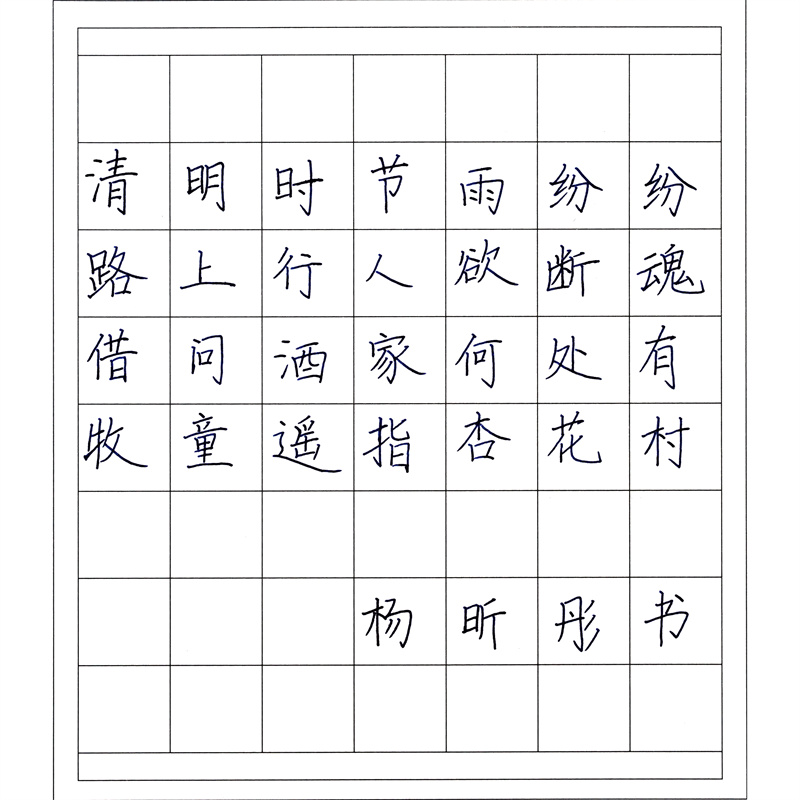 清明时节雨纷纷
路上行人欲断魂
借问酒家何处有
牧童遥指杏花村
杨昕彤书